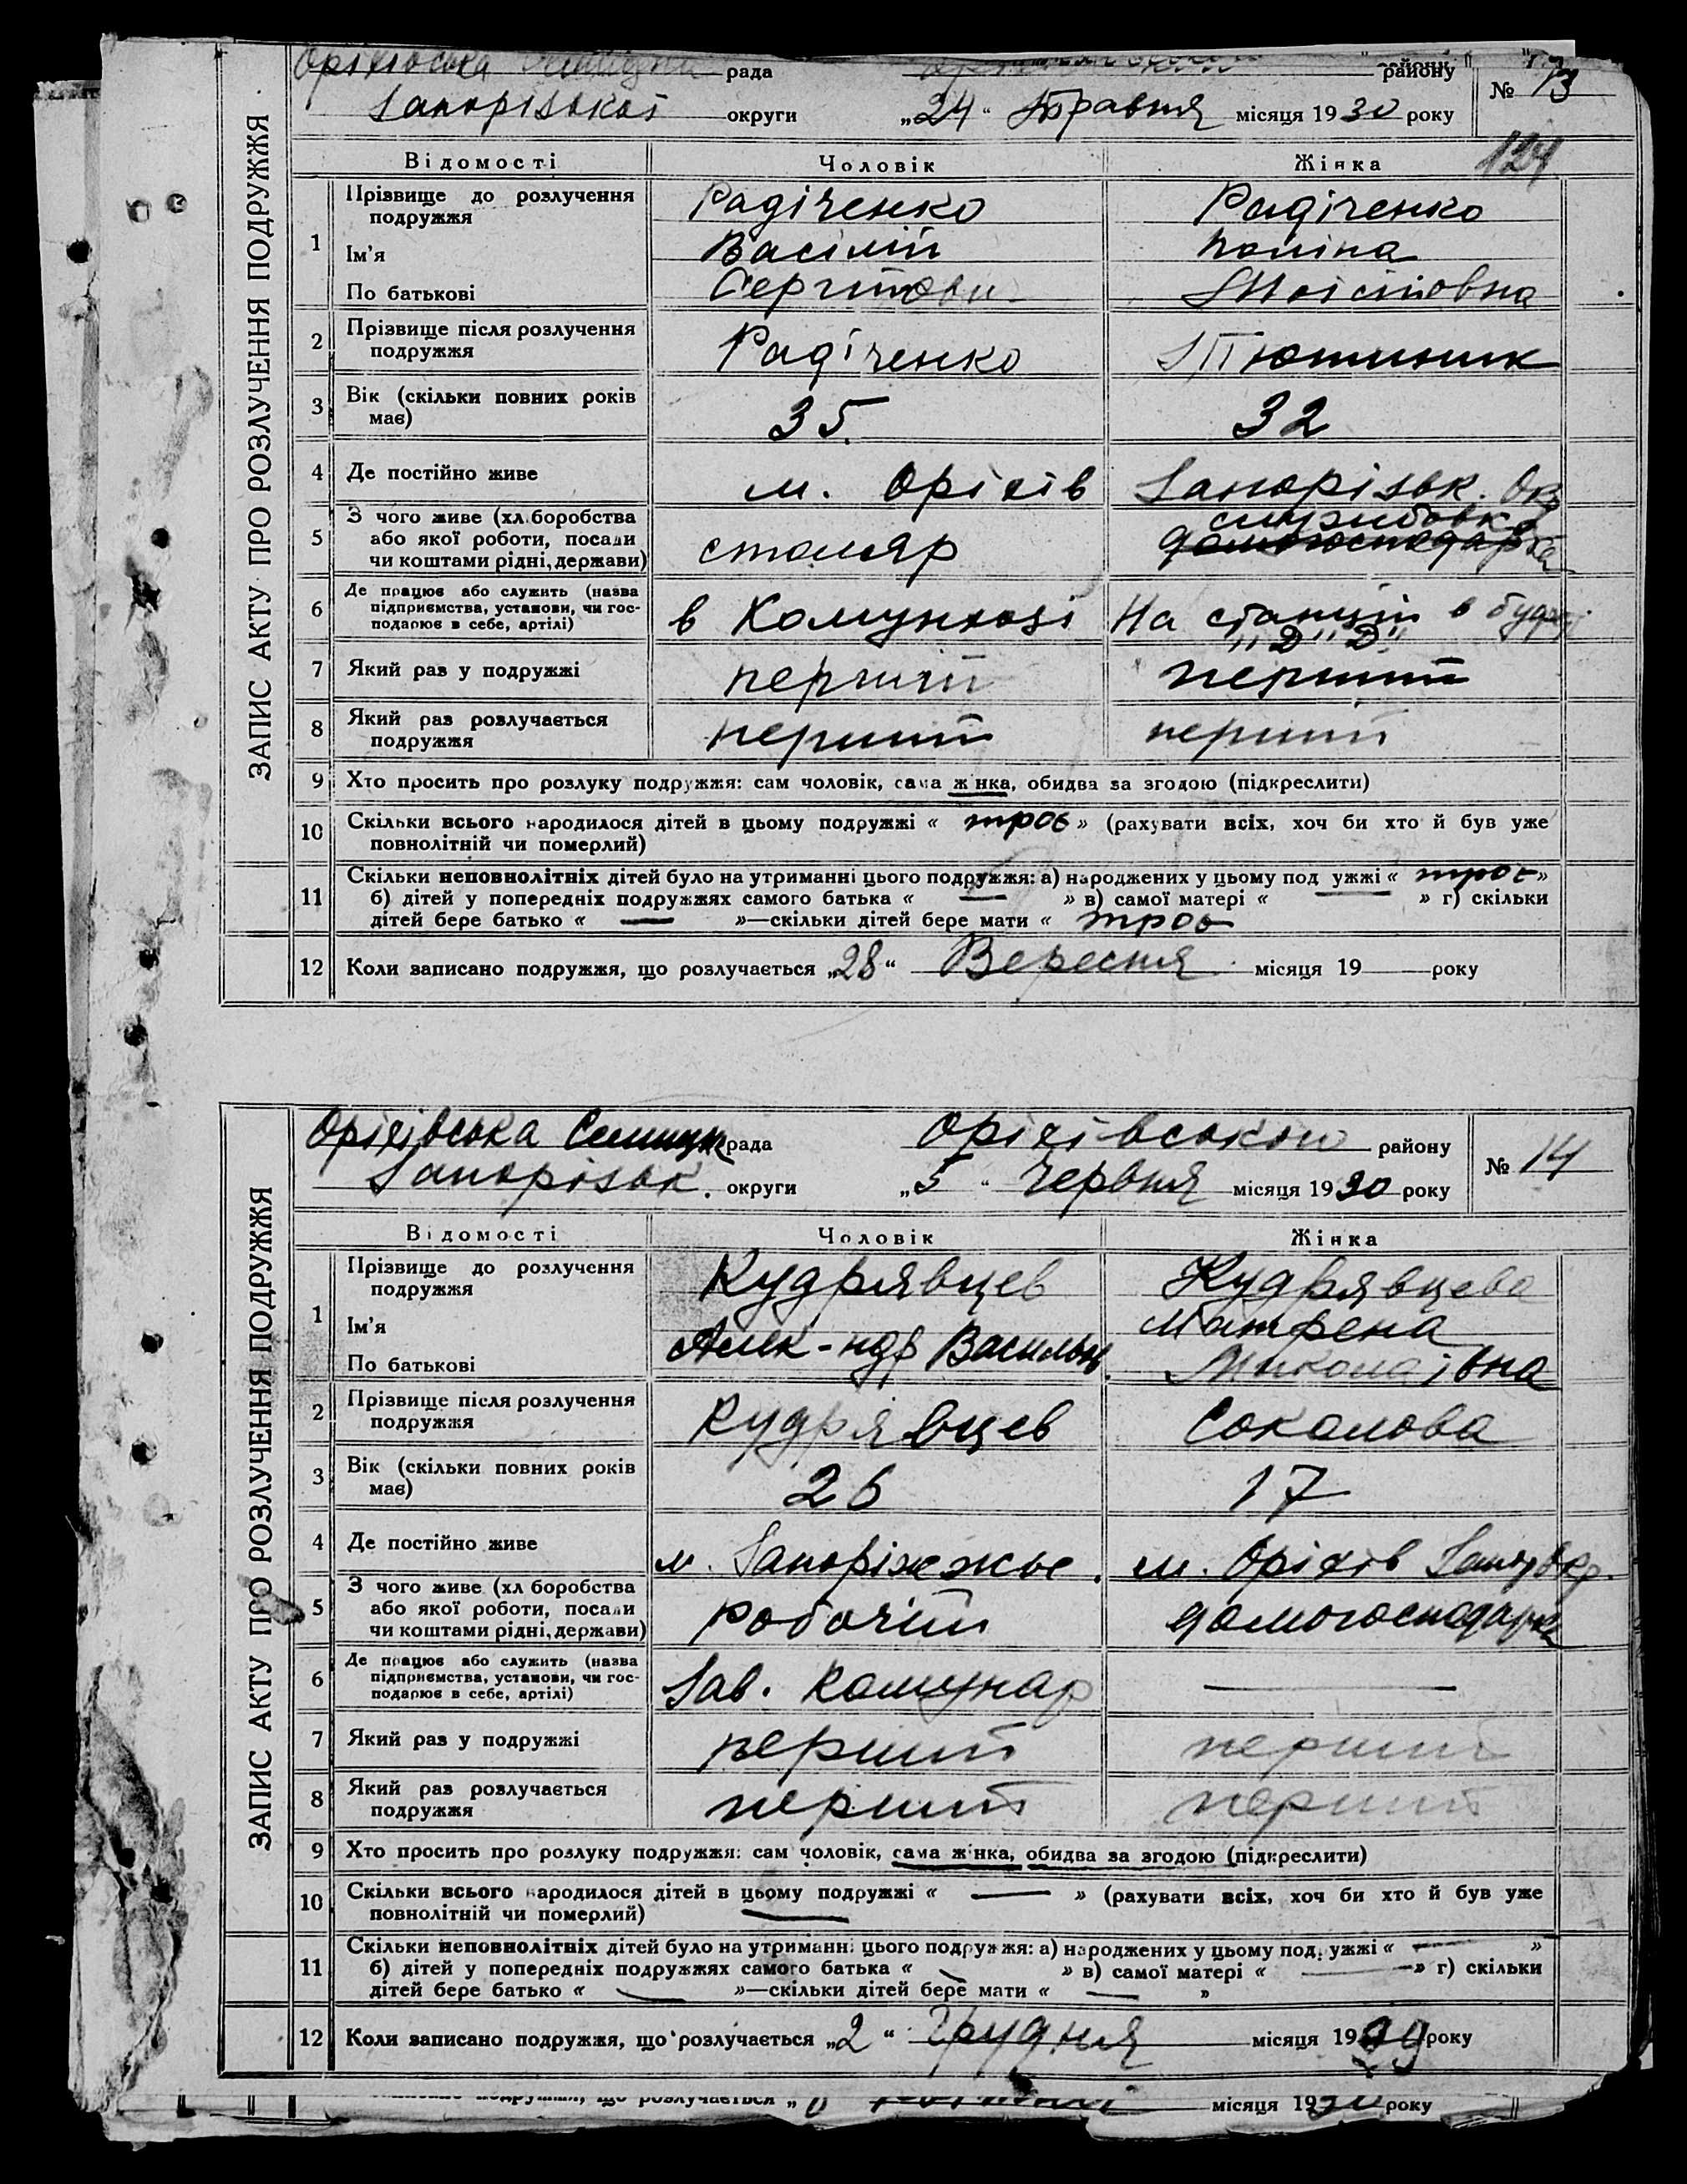 ЗАПИС АКТУ ПРО РОЗЛУЧЕННЯ ПОДРУЖЖЯ
Оріхівська рада району № 13
Запорізької округи „24“ Травня місяця 1930 року
124
Відомості Чоловік Жінка
1 Прізвище до розлучення подружжя Радіченко Радіченко
Ім'я Васілій Поліна
По батькові Сергійови Мойсіївна
2 Прізвище після розлучення подружжя Радіченко Тютюник
3 Вік (скільки повних років має) 35 32
4 Де постійно живе м. Оріхів Запорізьк. Окр
5 З чого живе (хл.боробства або якої роботи, посади чи коштами рідні, держави) столяр домогосподарка
6 Де працює або служить (назва підприємства, установи, чи господарює в себе, артілі) в На станції в
"Д" Д"
7 Який раз у подружжі перший перший
8 Який раз розлучається подружжя перший перший
9 Хто просить про розлуку подружжя: сам чоловік, сама жінка, обидва за згодою (підкреслити)
10 Скільки всього народилося дітей в цьому подружжі « троє » (рахувати всіх, хоч би хто й був уже
повнолітній чи померлий)
11 Скільки неповнолітніх дітей було на утриманні цього подружжя: а) народжених у цьому подружжі « троє »
б) дітей у попередніх подружжях самого батька « — » в) самої матері « — » г) скільки
дітей бере батько « — »—скільки дітей бере мати « троє
12 Коли записано подружжя, що розлучається „28“ Вересня місяця 19 року
ЗАПИС АКТУ ПРО РОЗЛУЧЕННЯ ПОДРУЖЖЯ
Оріхівська рада Оріхівського району № 14
Запорізьк. округи „5“ Червня місяця 1930 року
Відомості Чоловік Жінка
1 Прізвище до розлучення подружжя Кудрявцев Кудрявцева
Ім'я Алек-ндр Матрена
По батькові Васильов. Миколаівна
2 Прізвище після розлучення подружжя Кудрявцев Соколова
3 Вік (скільки повних років має) 26 17
4 Де постійно живе м. Запоріжжье. м. Оріхів Запор Окр.
5 З чого живе (хл боробства або якої роботи, посади чи коштами рідні, держави) робочій домогосподарка
6 Де працює або служить (назва підприємства, установи, чи господарює в себе, артілі) Зав. Комунар —
7 Який раз у подружжі перший перший
8 Який раз розлучається подружжя перший перший
9 Хто просить про розлуку подружжя: сам чоловік, сама жінка, обидва за згодою (підкреслити)
10 Скільки всього народилося дітей в цьому подружжі « — » (рахувати всіх, хоч би хто й був уже
повнолітній чи померлий)
11 Скільки неповнолітніх дітей було на утриманні цього подружжя: а) народжених у цьому подружжі « — »
б) дітей у попередніх подружжях самого батька « — » в) самої матері « — » г) скільки
дітей бере батько « — »—скільки дітей бере мати « — »
12 Коли записано подружжя, що розлучається „2“ Грудня місяця 1929 року
подружжя, що розлучається „ місяця 1930 року